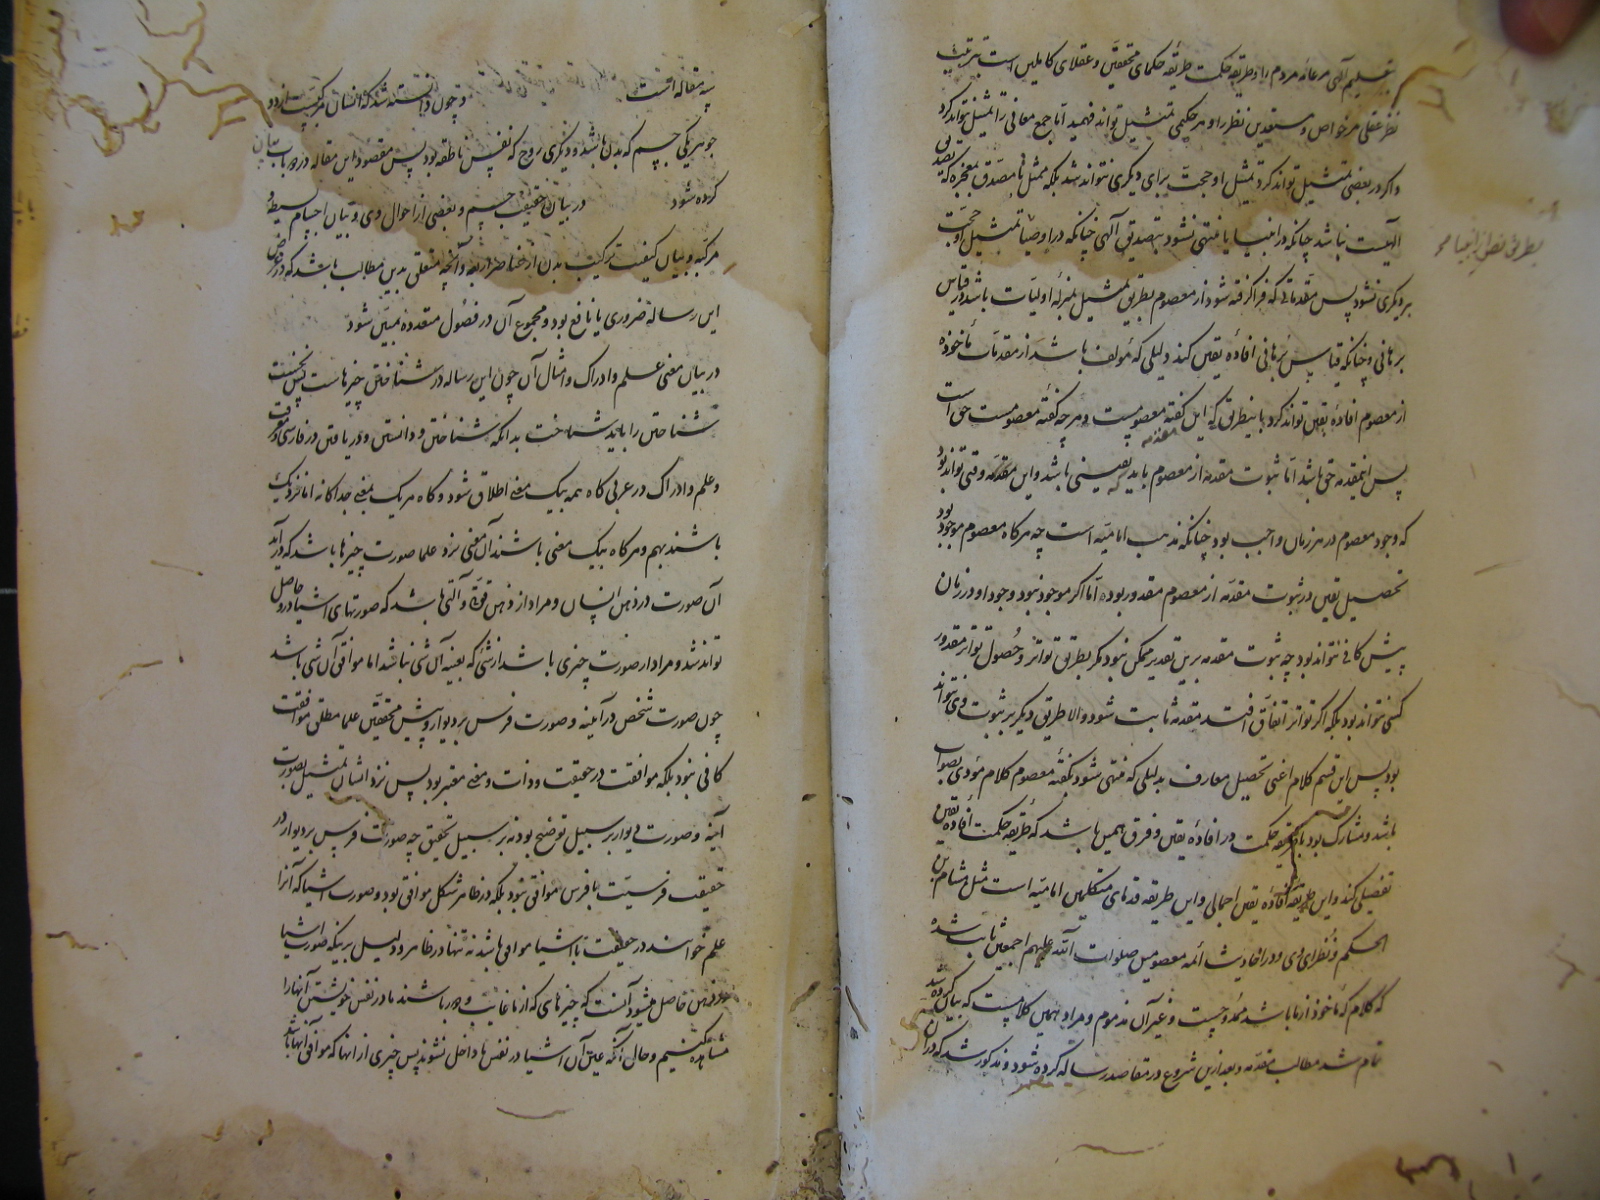 تعلیم الهی مر عامهٔ مردم را و طریقهٔ حکمت طریقهٔ حکمای محققین و عقلای کاملین است
نظر عقلی مر خواص و مستعدین نظر را و هر حکیمی تمثیل تواند فهمید اما جمیع معانی را تمثیل نتواند کرد
و اگر در بعضی تمثیل تواند کرد تمثیل او حجت برای دیگری نتواند شد بلکه ممثل تا مصدق بمعجزه که تصدیق
الهیست نباشد چنانکه در انبیا یا منتهی نشود بتصدیق الهی چنانکه در اوصیا تمثیل او حجت
بر دیگری نشود پس مقدماتی که فرا گرفته شود از معصوم بطریق تمثیل بمنزلهٔ اولیات باشد در قیاس
برهانی و چنانکه قیاس برهانی افادهٔ یقین کند دلیلی که مؤلف باشد از مقدمات مأخوذه
از معصوم افادهٔ یقین تواند کرد باینطریق که این گفتهٔ معصومست و هر چه گفتهٔ معصومست حق است
پس اینمقدمه حق باشد اما ثبوت مقدمه از معصوم باید یقینی باشد و این مقدمه وقتی تواند بود
که وجود معصوم در هر زمان واجب بود چنانکه مذهب امامیه است چه هرگاه معصوم موجود بود
تحصیل یقین در ثبوت مقدمه از معصوم مقدور بود اما اگر موجود نبود وجود او در زمان
پیش کافی نتواند بود چه ثبوت مقدمه برین تقدیر ممکن نبود مگر بطریق تواتر و حصول تواتر مقدور
کسی نتواند بود بلکه اگر تواتر اتفاق افتد مقدمه ثابت شود والا طریق دیگر بر ثبوت وی نتواند
بود پس این قسم کلام اعنی تحصیل معارف بدلیلی که منتهی شود بگفتهٔ معصوم کلام مؤدی بصواب
باشد و مشارک بود با طریقهٔ حکمت در افادهٔ یقین و فرق همین باشد که طریقهٔ حکمت افادهٔ یقین
تفصیلی کند و این طریقه افادهٔ یقین اجمالی و این طریقهٔ قدمای متکلمین امامیه است مثل هشام بن
الحکم و نظرای وی و در احادیث ائمه معصومین صلوات الله علیهم اجمعین ثابت شده
که کلام که مأخوذ از ما باشد ممدوحست و غیر آن مذموم و مراد همین کلامست که بیان کرده شد
تمام شد مطالب مقدمه و بعد ازین شروع در مقاصد رساله کرده شود و مذکور شد که در آن
بطریق نقل از انبیا
سه مقاله است و چون دانسته شد که انسان مرکبست از دو
جوهر یکی جسم که بدن باشد و دیگری روح که نفس ناطقه بود پس مقصود این مقاله در دو باب بیان
کرده شود در بیان حقیقت جسم و بعضی از احوال وی و بیان اجسام بسیطه و
مرکبه و بیان کیفیت ترکیب بدن از عناصر اربعه و آنچه متعلق بدین مطالب باشد که در غرض
این رساله ضروری یا نافع بود و مجموع آن در فصول متعدده مبین شود
در بیان معنی علم و ادراک و امثال آن چون این رساله در شناختن چیزهاست پس نخست
شناختن را باید شناخت بدانکه شناختن و دانستن و دریافتن در فارسی و معرفت
و علم و ادراک در عربی گاه همه بیک معنی اطلاق شود و گاه هر یک بمعنی جداگانه اما نزدیک
باشند بهم و هرگاه بیک معنی باشند آن معنی نزد علما صورت چیزها باشد که در آید
آن صورت در ذهن انسان و مراد از ذهن قوة و آلتی باشد که صورتهای اشیا در و حاصل
تواند شد و مراد از صورت چیزی باشد از شی که بعینه آن شی نباشد اما موافق آن شی باشد
چون صورت شخص در آینه و صورت فرس بر دیوار و پیش محققین علما مطلق موافقت
کافی نبود بلکه موافقت در حقیقت و ذات و معنی معتبر بود پس نزد ایشان تمثیل بصورت
آینه و صورت دیوار بر سبیل توضیح بود نه بر سبیل تحقیق چه صورت فرس بر دیوار در
حقیقت فرسیت با فرس موافق نبود بلکه در ظاهر شکل موافق بود و صورت اشیا که آنرا
علم خوانند در حقیقت با اشیا موافق باشد نه تنها در ظاهر و دلیل برینکه صورت اشیا
در ذهن حاصل میشود آنست که چیزهای که از ما غایب و دور باشند ما در نفس خویشتن آنها را
مشاهده کنیم و حال آنکه عین آن اشیا در نفس ما داخل نشوند پس چیزی از آنها که موافق آنها باشد